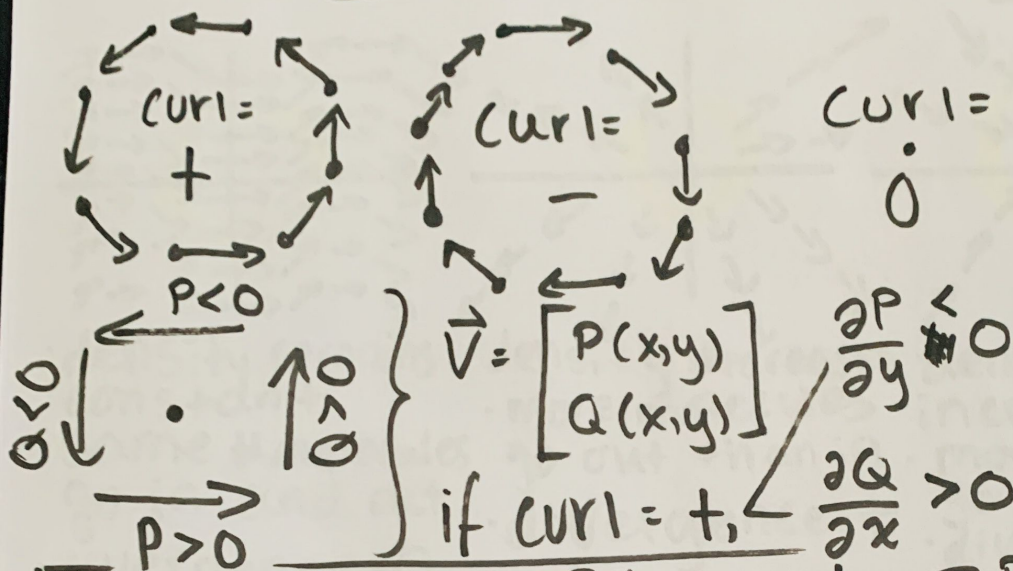 Curl=
+
Curl=
−
Curl=
0
P<0
Q<0
Q>0
P>0
V⃗= [P(x,y)
Q(x,y)]
if curl = +,
∂P/∂y < 0
∂Q/∂x > 0